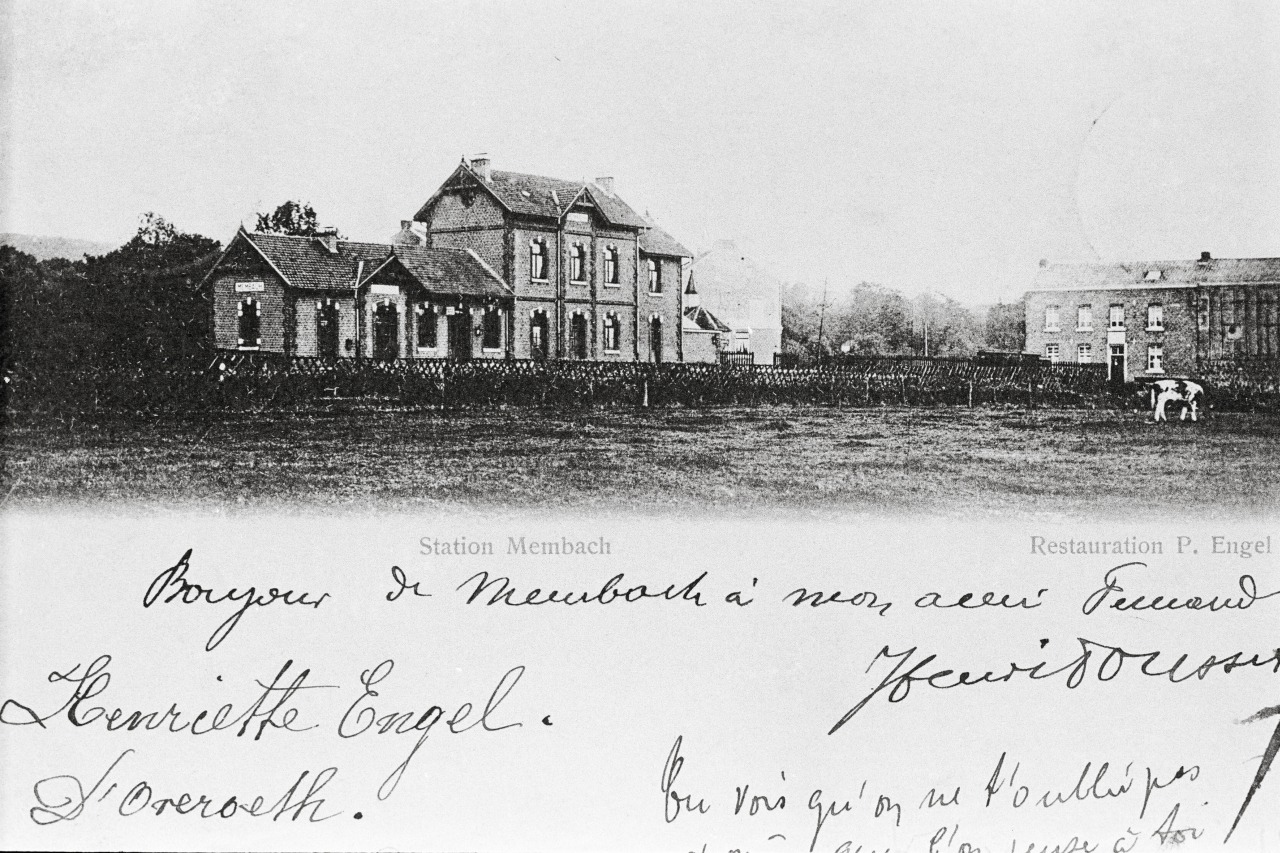 MEMBACH
Station Membach
Restauration P. Engel
Bonjour de Membach à mon ami Fernand
Henri
Henriette Engel.
D'Overoeth.
Tu vois qu'on ne t'oublie pas
que l'on pense à toi